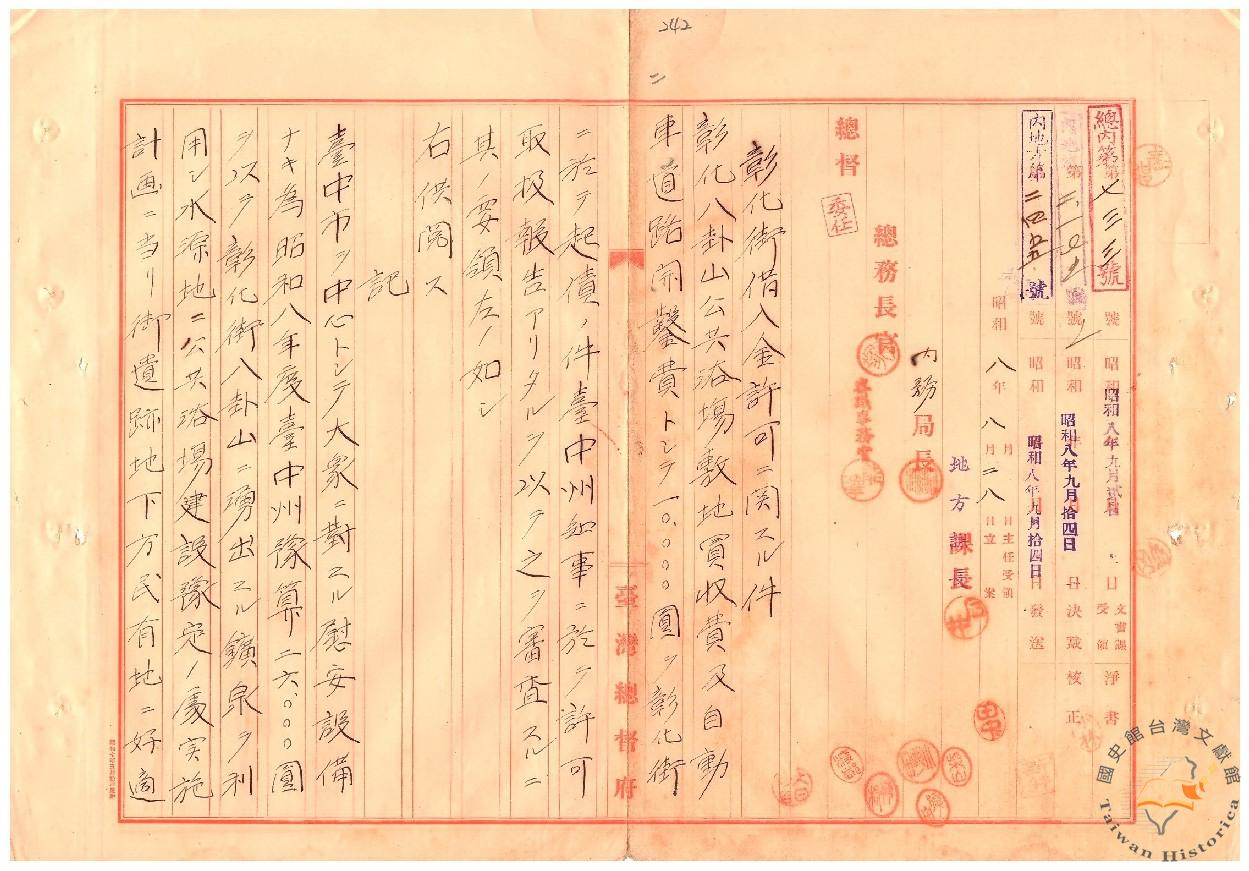 242
二
總內第七三三號
號 昭和八年九月 日 文書課受領 淨書
第二一〇 號 昭和八年九月拾四日 決裁 校正
內地方第二四五 號
號 昭和八年九月拾四日 發送
昭和八年八月二八日立案
月 日主任受領
內務局長
地方課長
總務長官
總督
委任
彰化街借入金許可ニ関スル件
彰化八卦山公共浴場敷地買收費及自動
車道路開鑿費トシテ一〇、〇〇〇圓ヲ彰化街
ニ於テ起債ノ件臺中州知事ニ於テ許可
取扱報告アリタルヲ以テ之ヲ審査スルニ
其ノ要領左ノ如シ
右供閱ス
記
臺中市ヲ中心トシテ大衆ニ對スル慰安設備
ナキ為昭和八年度臺中州豫算二六、〇〇〇圓
ヲ以テ彰化街八卦山ニ湧出スル鑛泉ヲ利
用シ水源地ニ公共浴場建設豫定ノ處実施
計画ニ当リ御遺跡地下方民有地ニ好適
臺灣總督府
國史館台灣文獻館
Taiwan Historica